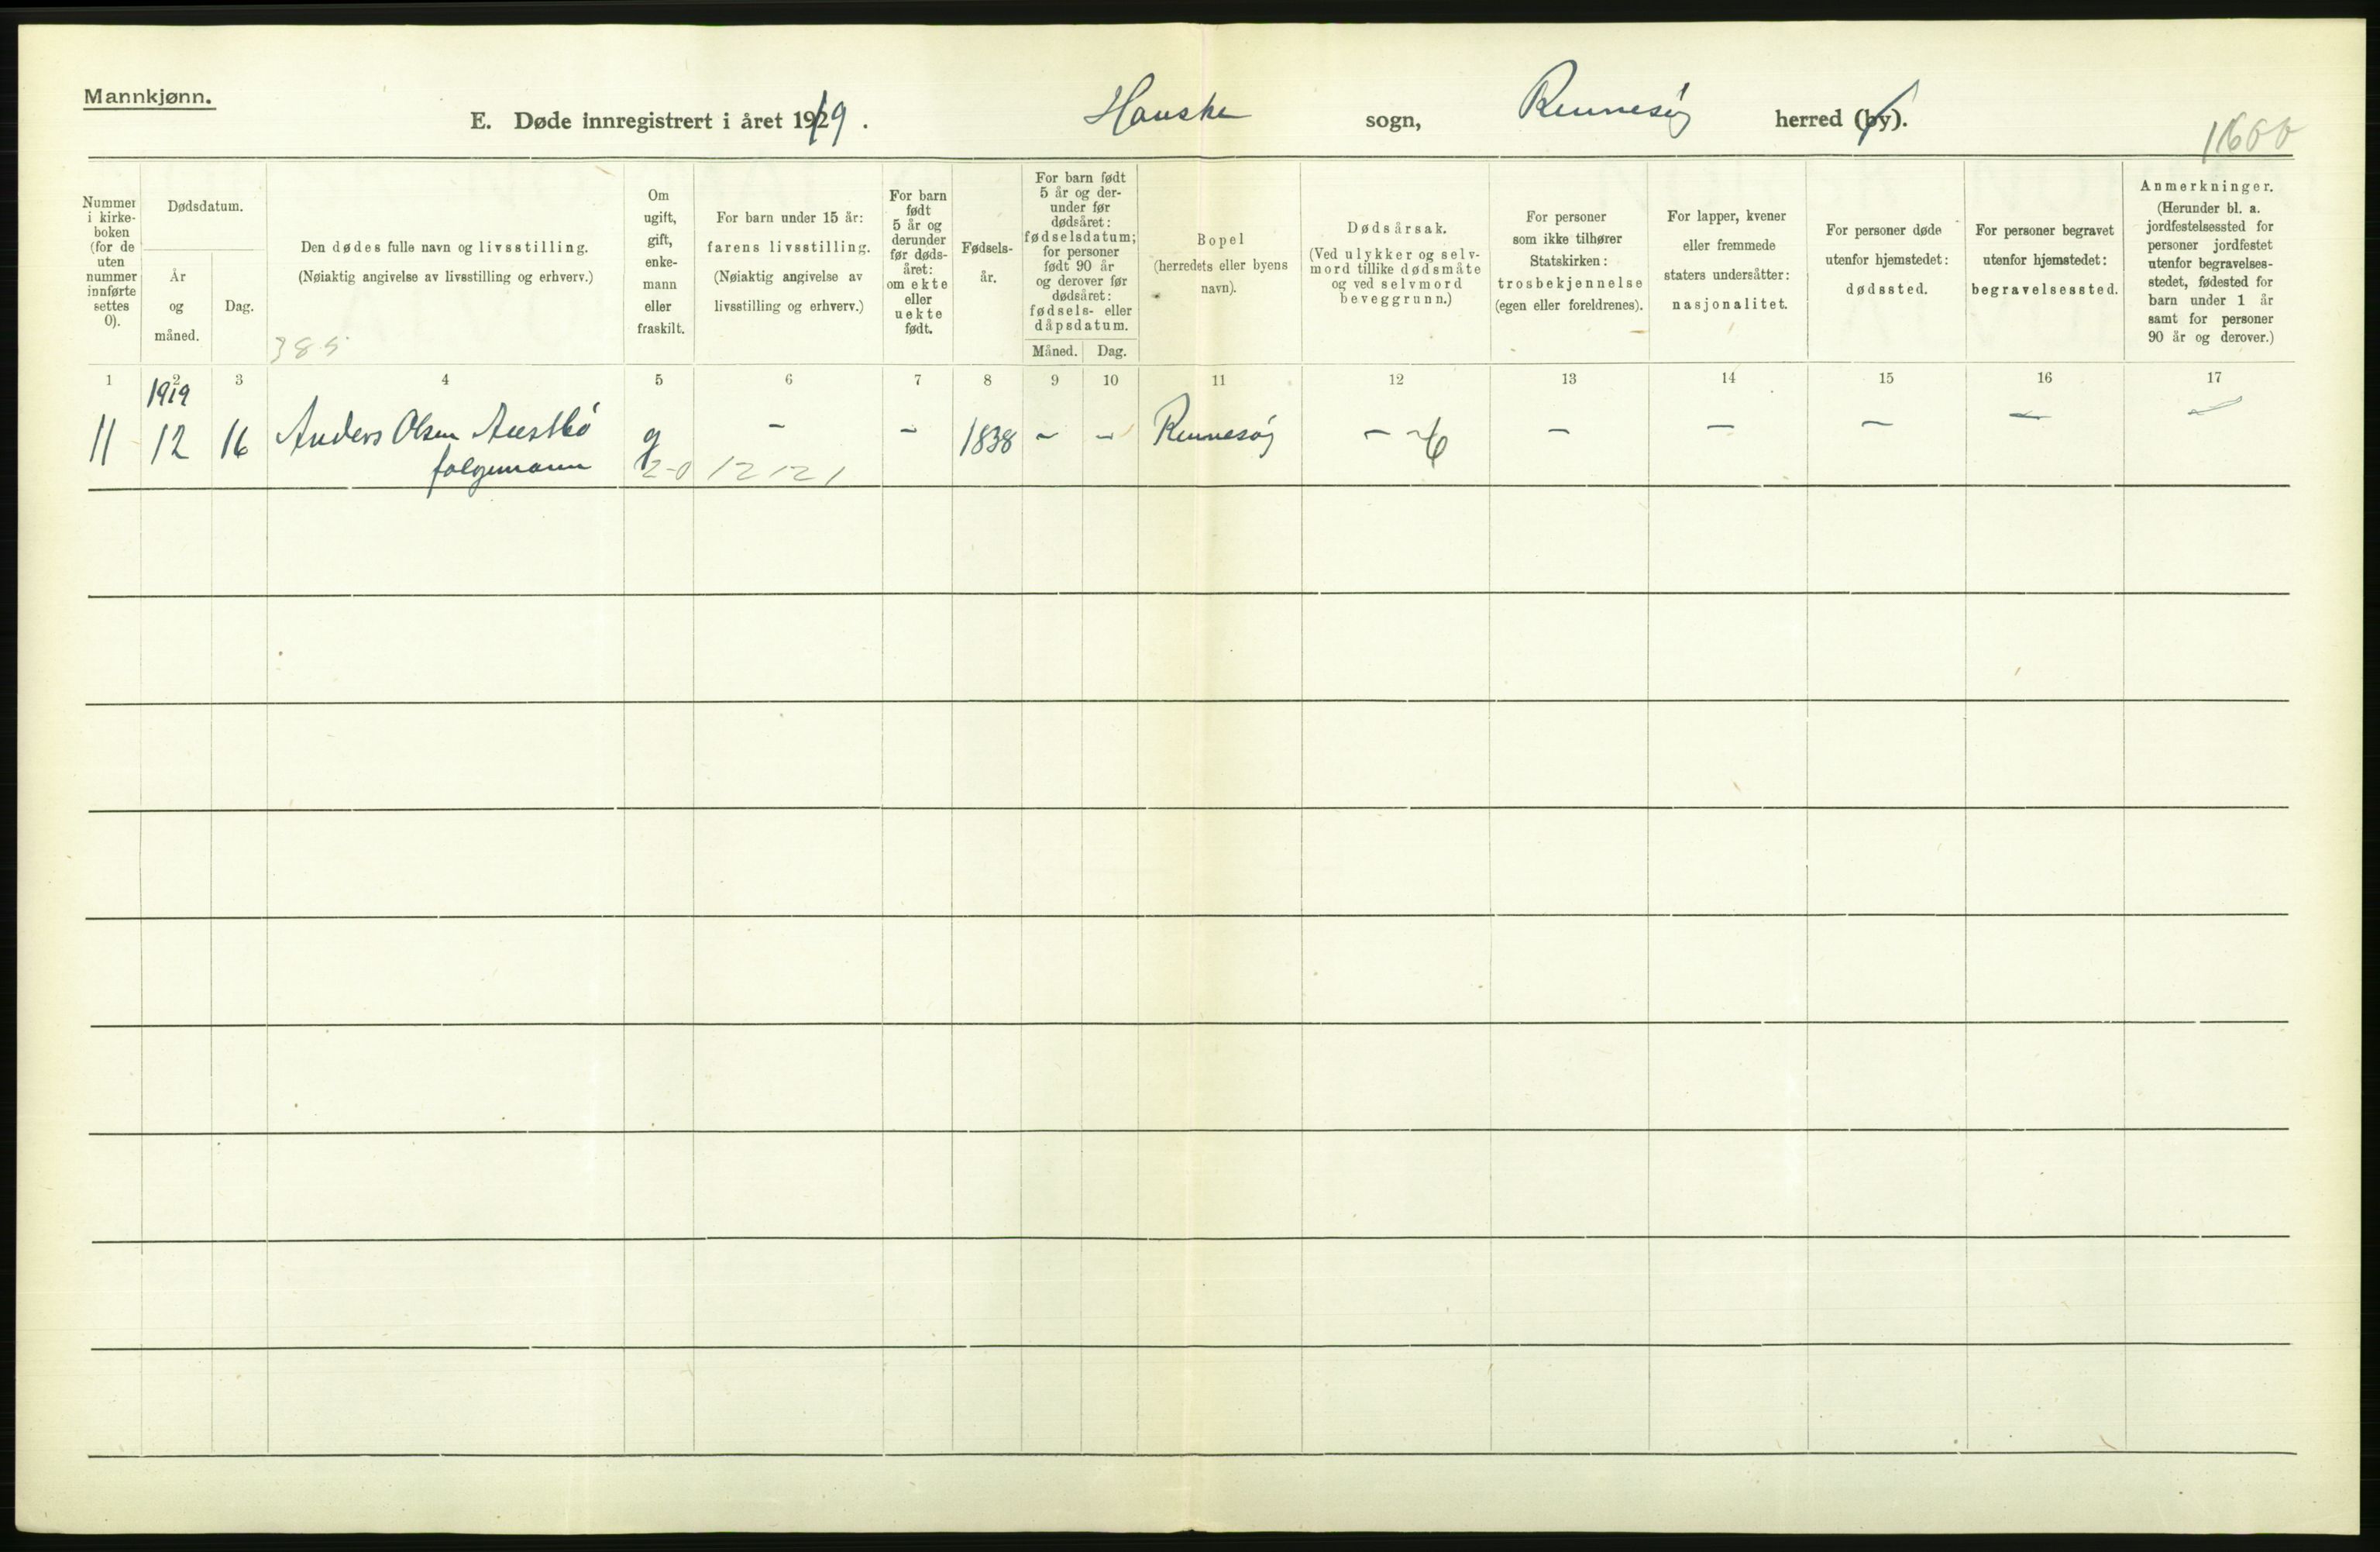 Mannkjønn.
E. Døde innregistrert i året 1919. Hauske sogn, Rennesøy herred (by).
11600
Nummer i kirke- boken (for de uten nummer innførte settes 0).
Dødsdatum.
År og måned.
Dag.
Den dødes fulle navn og livsstilling.
(Nøiaktig angivelse av livsstilling og erhverv.)
385
Om ugift, gift, enke- mann eller fraskilt.
For barn under 15 år: farens livsstilling.
(Nøiaktig angivelse av livsstilling og erhverv.)
For barn født 5 år og derunder før døds- året: om ekte eller uekte født.
Fødsels- år.
For barn født 5 år og der- under før dødsåret: fødselsdatum; for personer født 90 år og derover før dødsåret: fødsels- eller dåpsdatum.
Måned. Dag.
Bopel (herredets eller byens navn).
Dødsårsak.
(Ved ulykker og selv- mord tillike dødsmåte og ved selvmord beveggrunn.)
For personer som ikke tilhører Statskirken: trosbekjennelse (egen eller foreldrenes).
For lapper, kvener eller fremmede staters undersåtter: nasjonalitet.
For personer døde utenfor hjemstedet: dødssted.
For personer begravet utenfor hjemstedet: begravelsessted.
Anmerkninger.
(Herunder bl. a. jordfestelsessted for personer jordfestet utenfor begravelses- stedet, fødested for barn under 1 år samt for personer 90 år og derover.)
1 2 3 4 5 6 7 8 9 10 11 12 13 14 15 16 17
1919
11 12 16 Anders Olsen Austbö g - - 1838 - - Rennesöy - - - - - - -
folgemann 2-0 12121